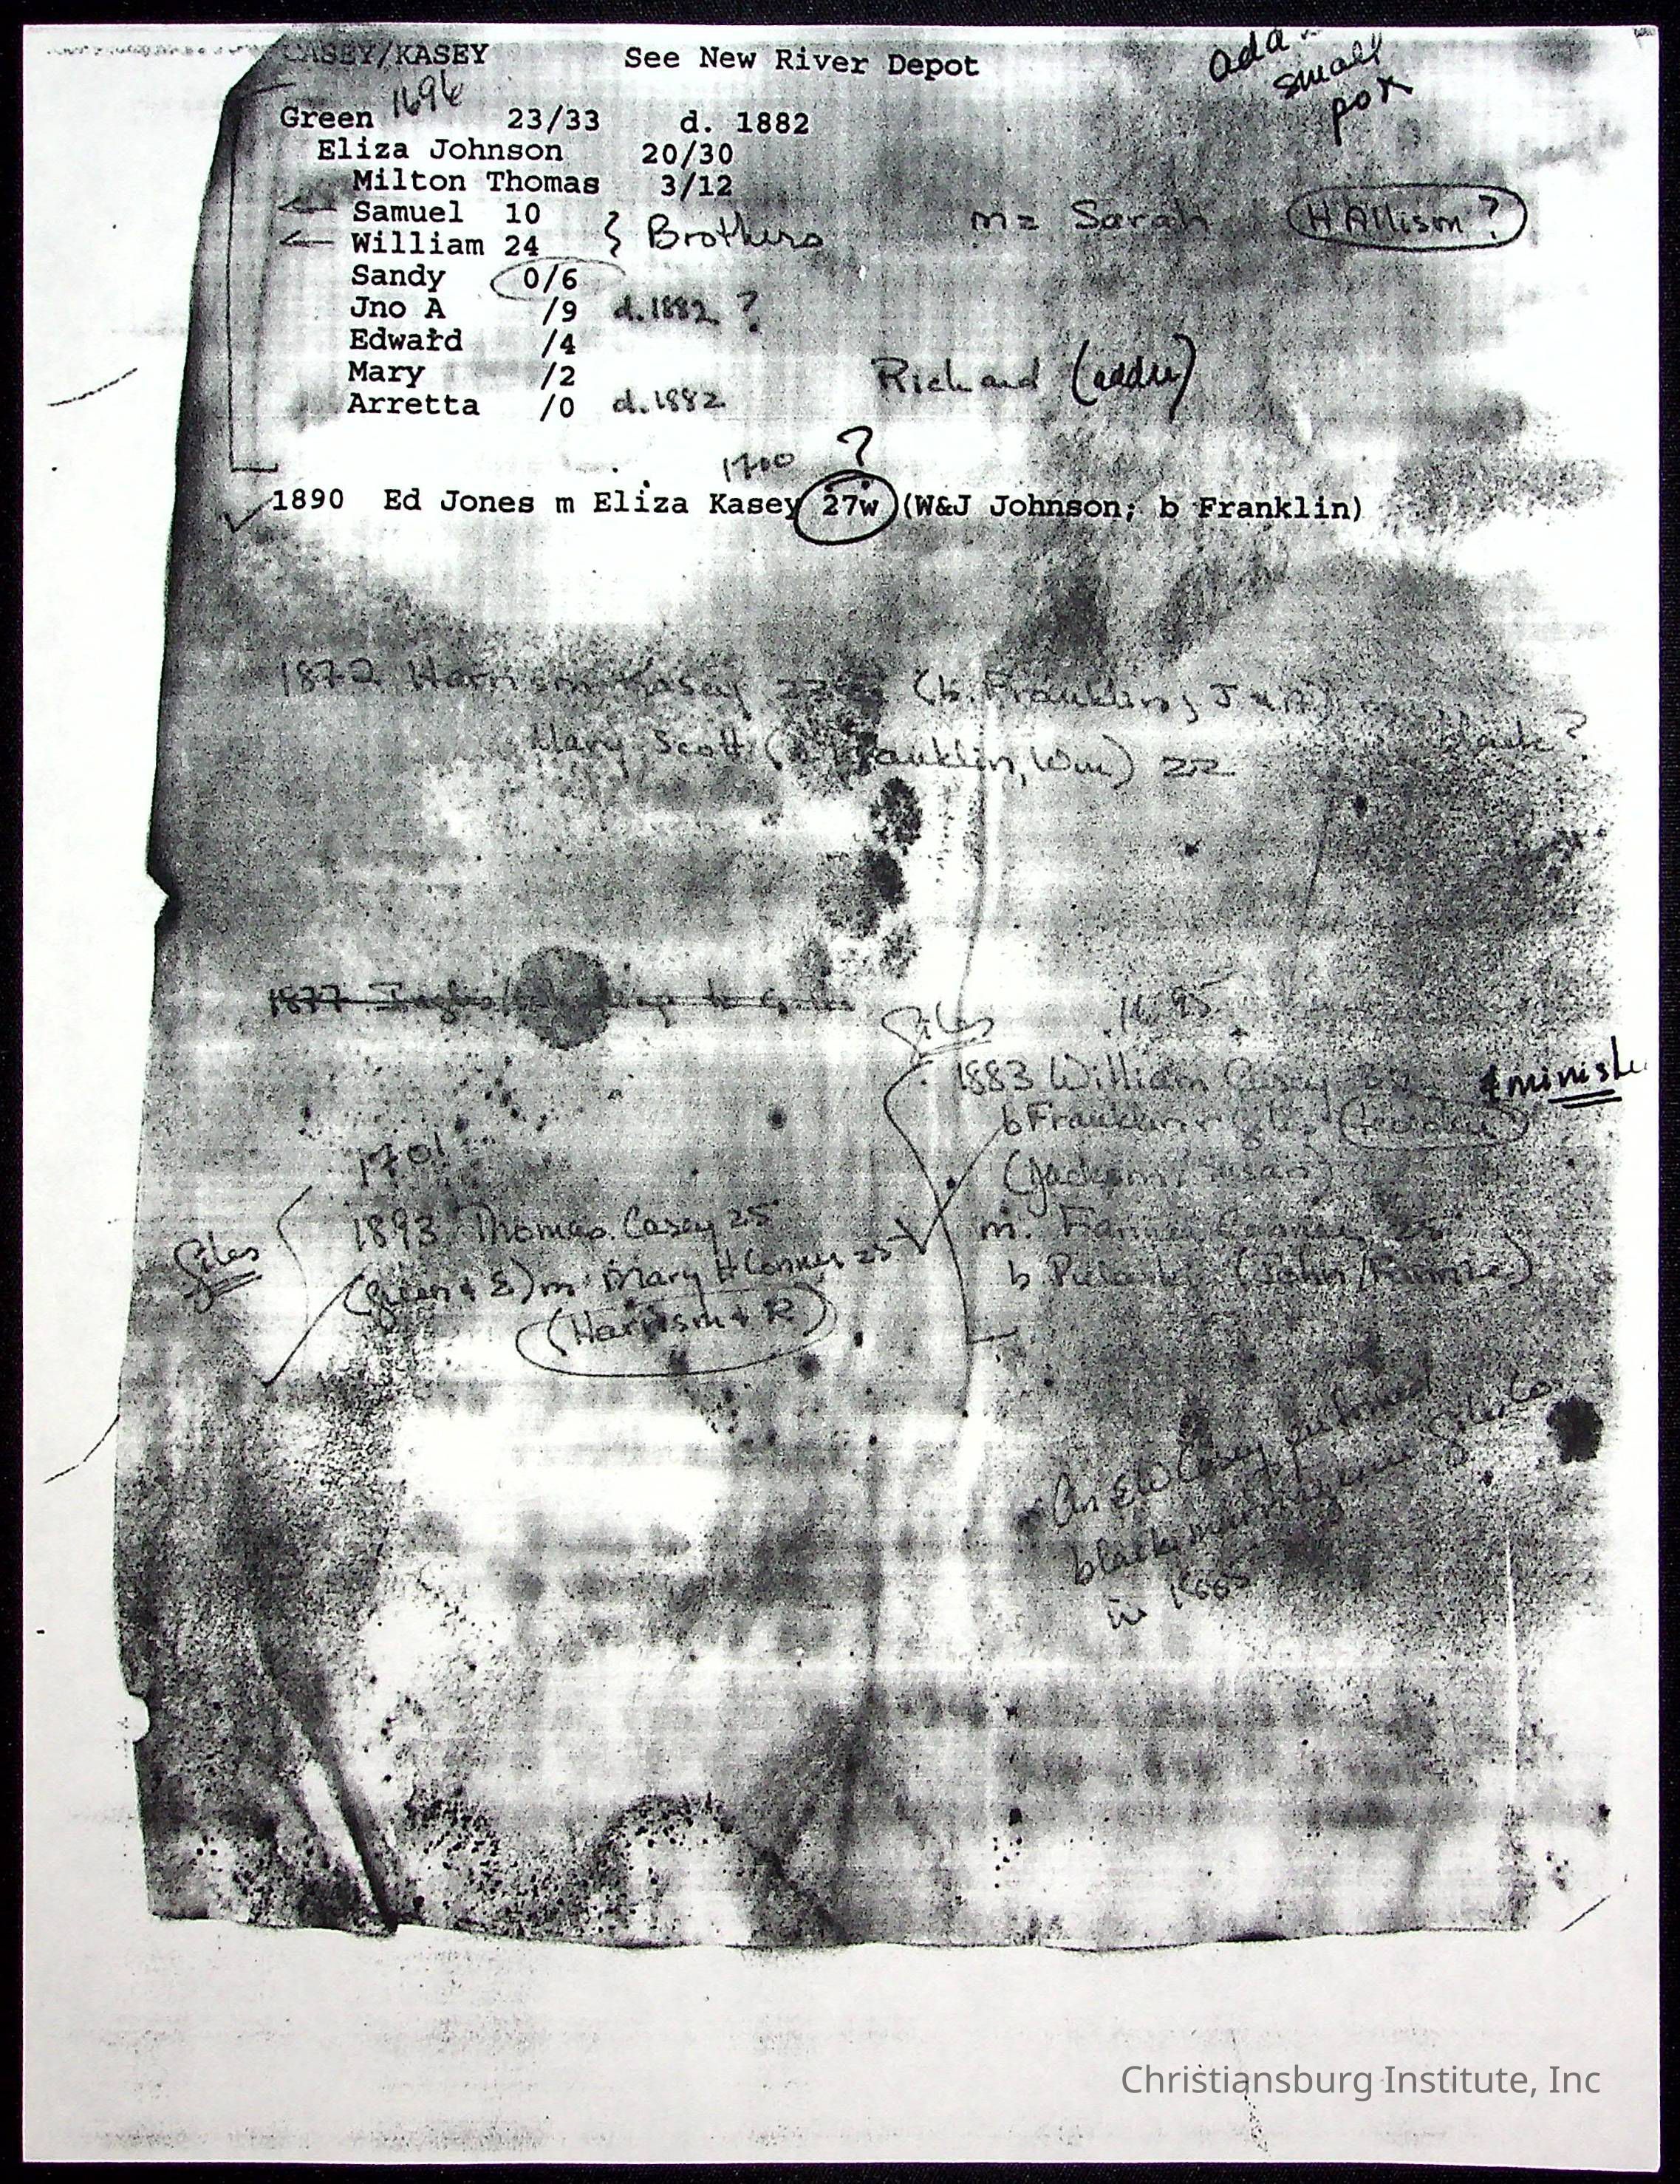 CASEY/KASEY See New River Depot
small
pox
1696
Green 23/33 d. 1882
Eliza Johnson 20/30
Milton Thomas 3/12
Samuel 10
William 24 } Brothers m= Sarah H Allison?
Sandy 0/6
Jno A /9 d. 1882 ?
Edward /4
Mary /2 Richard
Arretta /0 d. 1882
1700 ?
1890 Ed Jones m Eliza Kasey 27w (W&J Johnson; b Franklin)
1872 Harrison Kasey (b. Franklin;
Mary Scott Franklin, Wm) 22
1877
Giles 1695
1883 William Casey & ministe
b Franklin
(Jackson
m. Fannie
b Pulaski (John/Fannie)
1701
Giles
1893 Thomas Casey 25
(Green & E) m Mary H Conner 25
(Harrison & R)
An EW Casey performed
black Giles Co
in 1880s
Christiansburg Institute, Inc